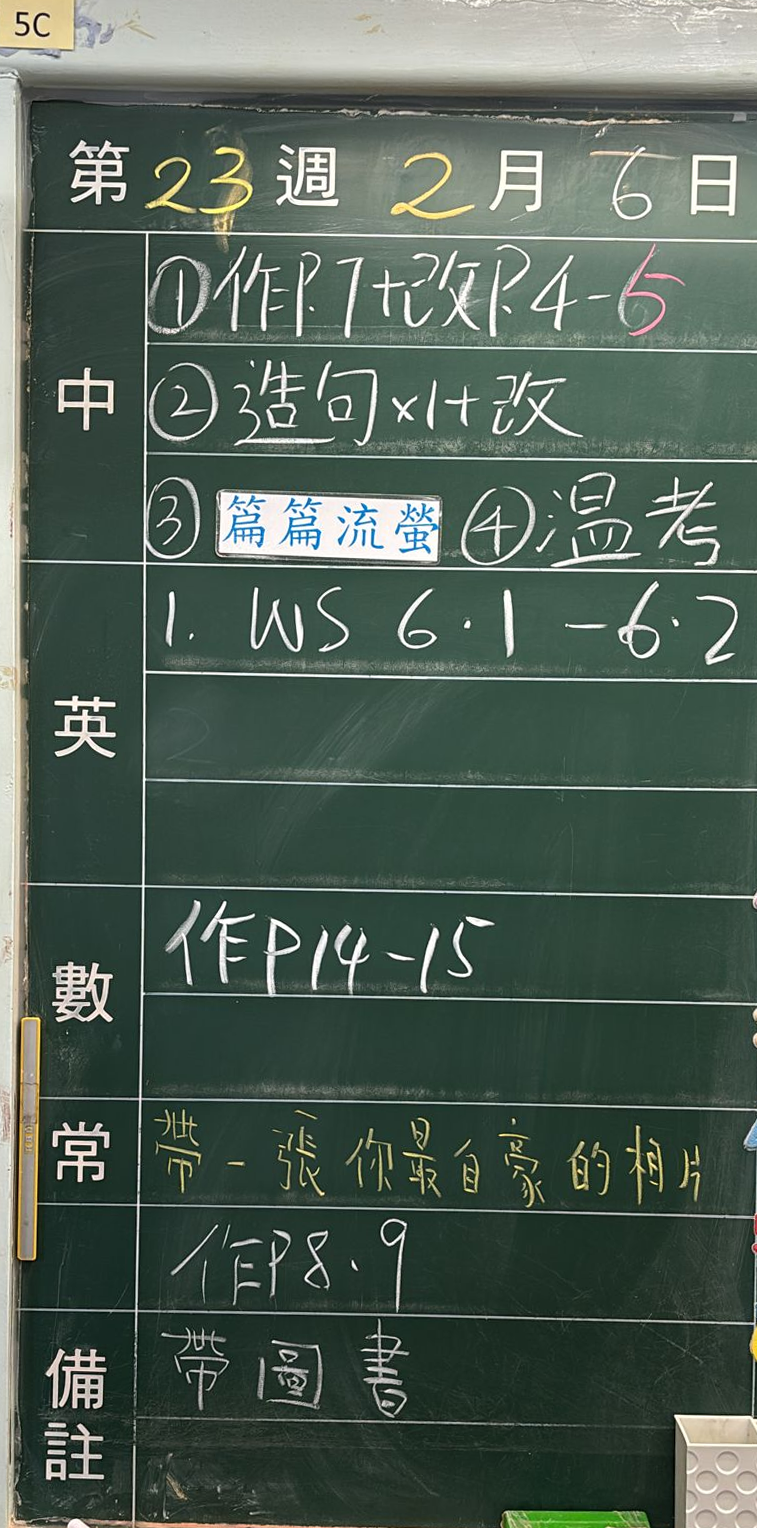 5C
第23週 2月6日
中
①作P.7+改P.4-5
②造句×1+改
③篇篇流螢 ④温考
英
1. WS 6.1-6.2
數
作P14-15
常
帶一張你最自豪的相片
作P8、9
備註
帶圖書